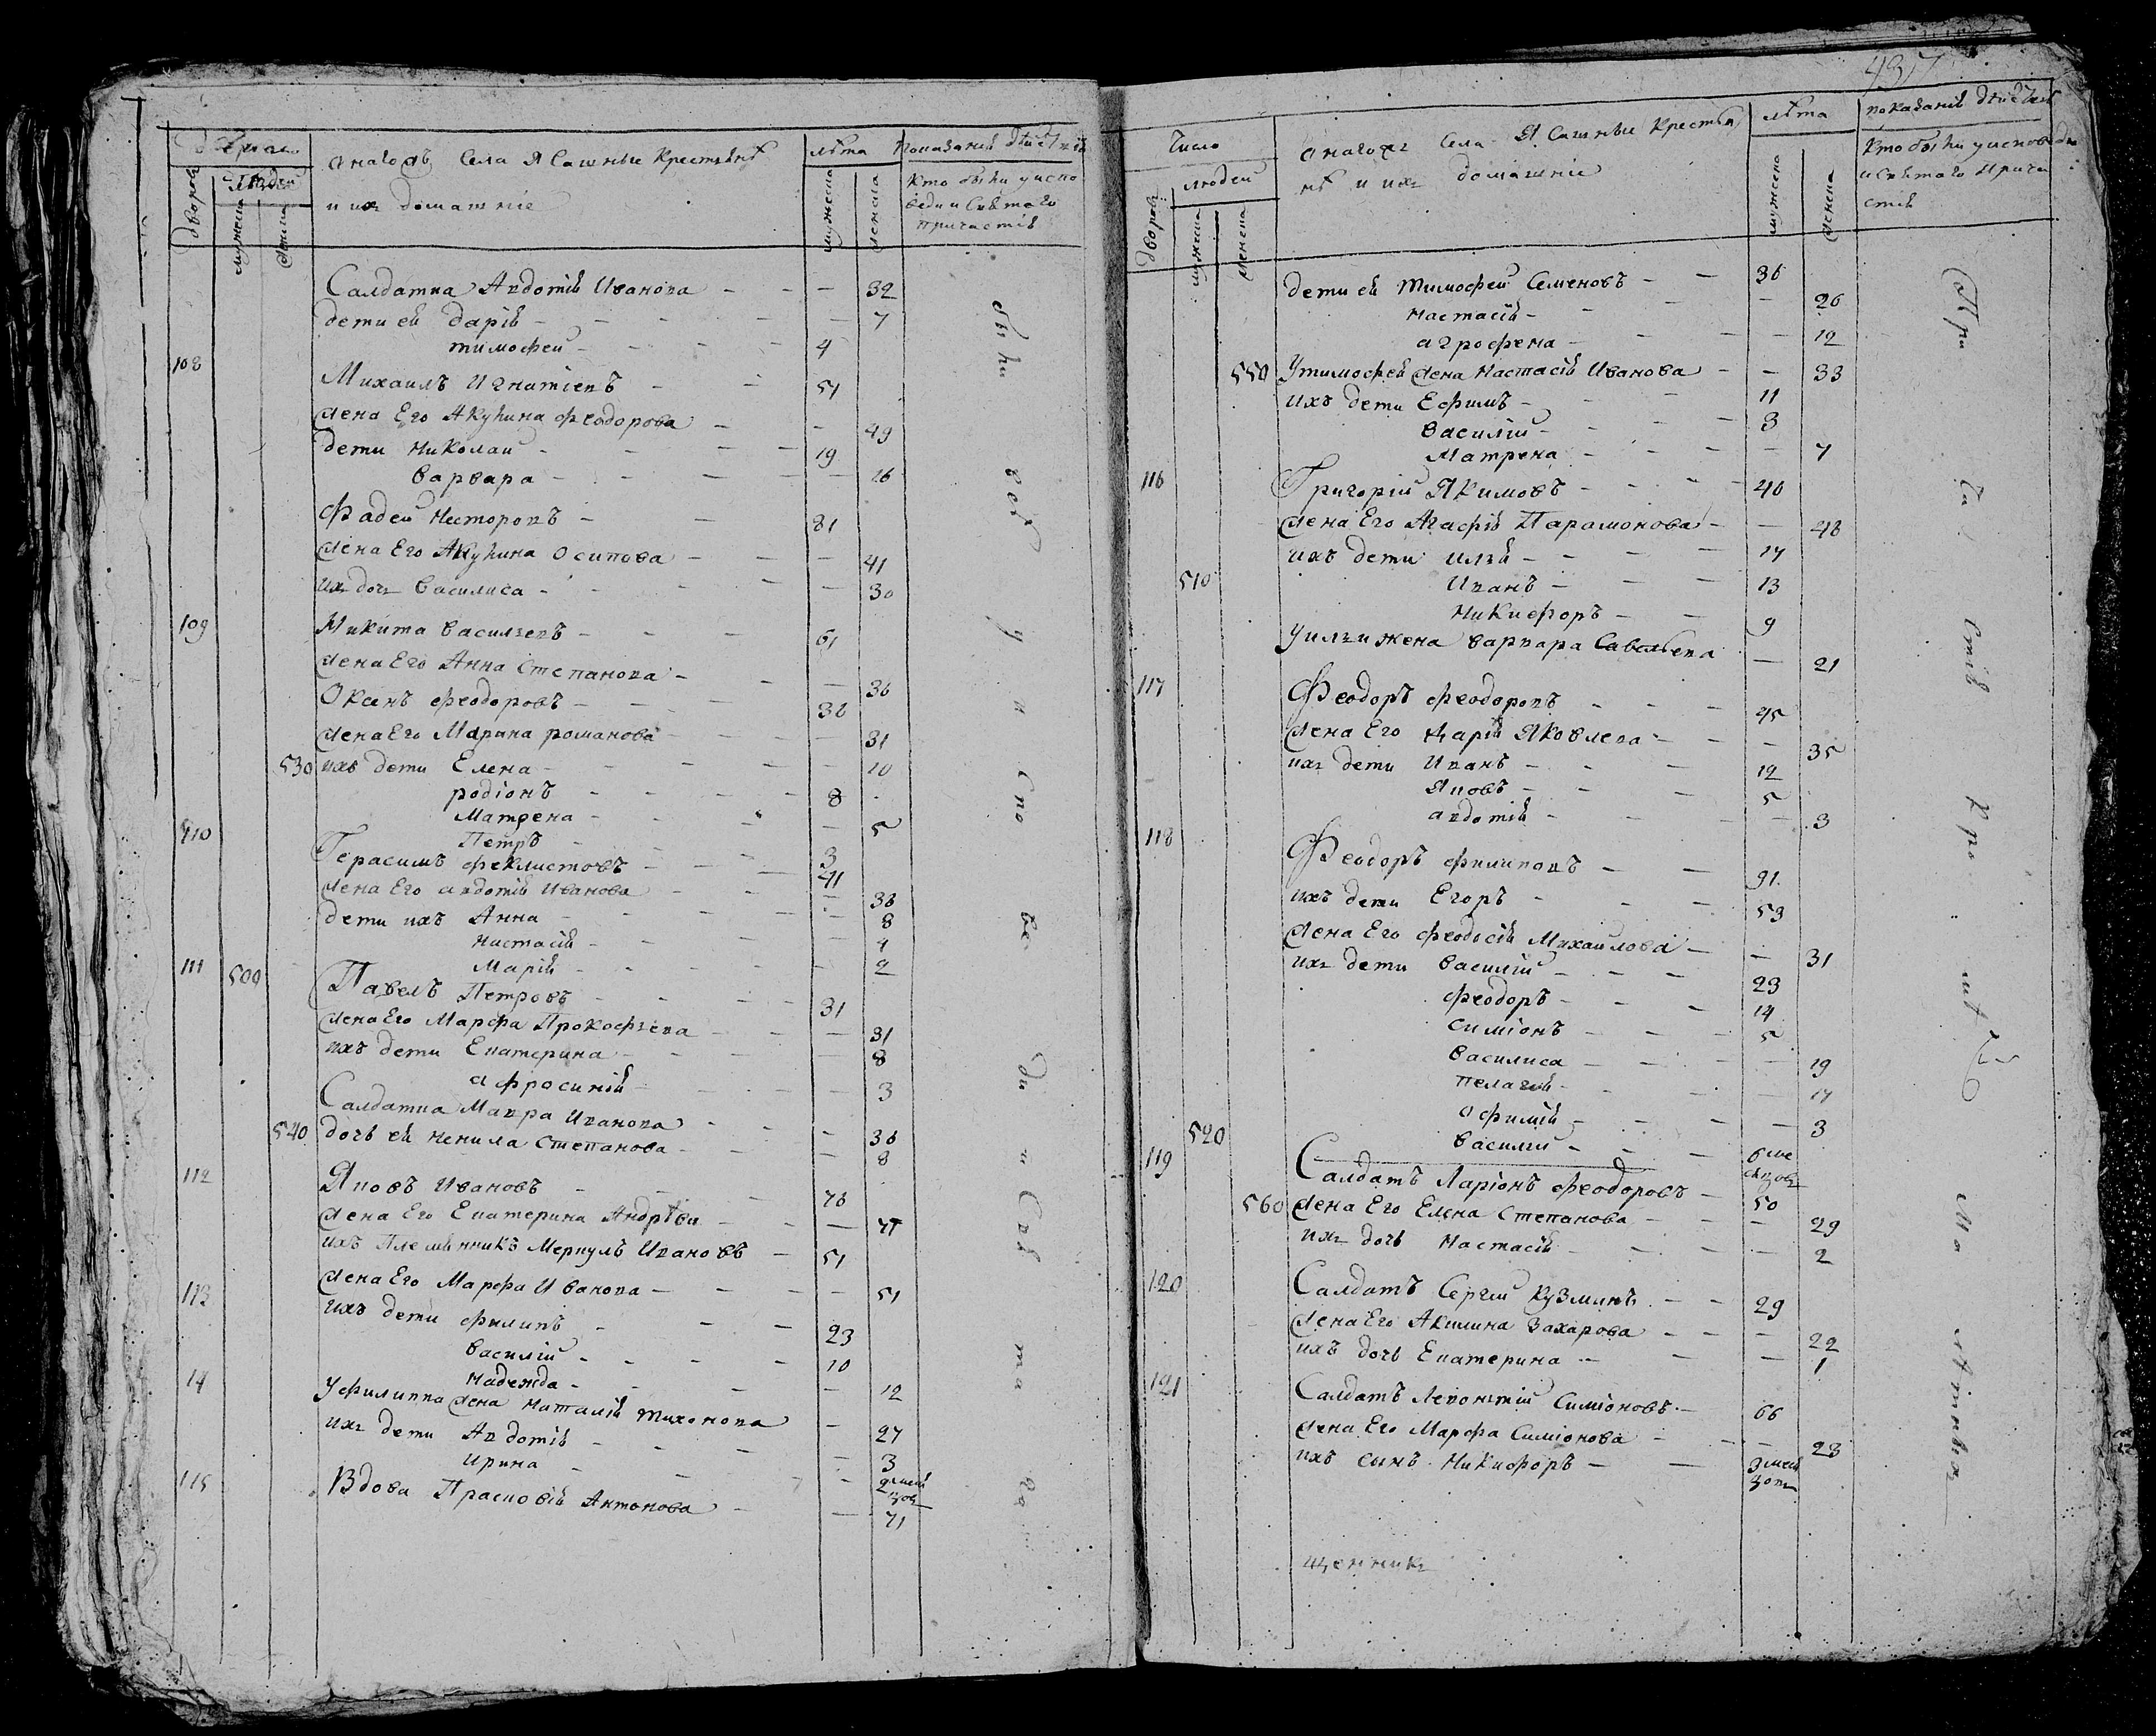 число
людей
дворовъ
мужеска
женска
Села Ясашные Крестьянѣ
и ихъ домашніе
лѣта
мужеска
женска
Показаніе дѣйствія
Кто были у испо
веди и Святаго
причастія
Салдатка Авдотія Иванова - - - 32
дети ея Дарія - - - 7
тимофеи - - - 4
108 Михаилъ Игнатіевъ - - 51
жена Его Акулина феодорова - - 49
дети Николаи - - - 19
варвара - - - 16
Фадеи Несторовъ - - 81
жена Его Акулина Осипова - - - 41
ихъ дочь василиса - - - 30
109 Никита васильевъ - - - 61
жена Его Анна Степанова - - - 36
феодоровъ - - - 36
жена Его Марина романова - - - 31
530 ихъ дети Елена - - - 10
родіонъ - - - 8
Матрена - - - 5
Петръ - - - 3
110 Герасимъ феклистовъ - - - 41
жена Его авдотія Иванова - - - 36
дети ихъ Анна - - - 8
Настасія - - - 4
Марія - - - 2
111 500 Павелъ Петровъ - - - 31
жена Его Марфа Прокофьева - - - 31
ихъ дети Екатерина - - - 8
афросинія - - - 3
Салдатка Мавра Иванова - - - 36
540 дочь ея ненила Степанова - - - 8
112 Яковъ Ивановъ - - - 76
жена Его Екатерина Андрѣва - - - 71
ихъ Племянникъ Меркулъ Ивановъ - 51
жена Его Марфа Иванова - - - 51
113 ихъ дети филипъ - - - 23
василіи - - - 10
надежда - - - 12
114 у филиппа жена Наталія тихонова - 27
ихъ дети Авдотія - - - 3
Ирина - - - 2 меся
цовъ
115 Вдова Прасковія Антонова - - 71
были
во
у
и
спо
ве
ди
и Свя
та
го
437
Число
людей
дворовъ
мужеска
женска
Села Ясашные Крестья
нѣ и ихъ домашніе
лѣта
мужеска
женска
показаніе дѣйствія
Кто были у исповеди
и Святаго Прича
стія
дети ея Тимофеи Семеновъ - - 36
настасія - - - 26
агрофена - - - 12
550 У тимофея жена Настасія Иванова - - 33
ихъ дети Ефимъ - - - 11
василіи - - - 3
Матрена - - - 7
116 Григоріи Якимовъ - - - 40
жена Его Агафія Парамонова - - 48
ихъ дети илья - - - 17
510 Иванъ - - - 13
Никифоръ - - 9
у ильи жена варвара Савельева - 21
117 Феодоръ феодоровъ - - - 45
жена Его Дарія Яковлева - - - 35
ихъ дети Иванъ - - - 12
Яковъ - - - 5
авдотія - - - 3
118 Феодоръ филиповъ - - 91
ихъ дети Егоръ - - - 53
жена Его феодосія Михаилова - - 31
ихъ дети василіи - - - 23
феодоръ - - - 14
симіонъ - - - 5
василиса - - - 19
пелагія - - - 17
офимія - - - 3
520 василіи - - - 6 ме
сяцовъ
119 Салдатъ Ларіонъ феодоровъ - 50
560 жена Его Елена Степанова - - - 29
ихъ дочь Настасія - - - 2
120 Салдатъ Сергіи Кузминъ - - 29
жена Его Акилина Захарова - - - 22
ихъ дочь Екатерина - - - 1
121 Салдатъ Леконтіи Симіоновъ - 66
жена Его Марфа Симіонова - - - 23
ихъ сынъ Никифоръ - - 3 меся
цовъ
При
ча
стія
кро
мѣ
Ма
лѣтнихъ
щенникъ